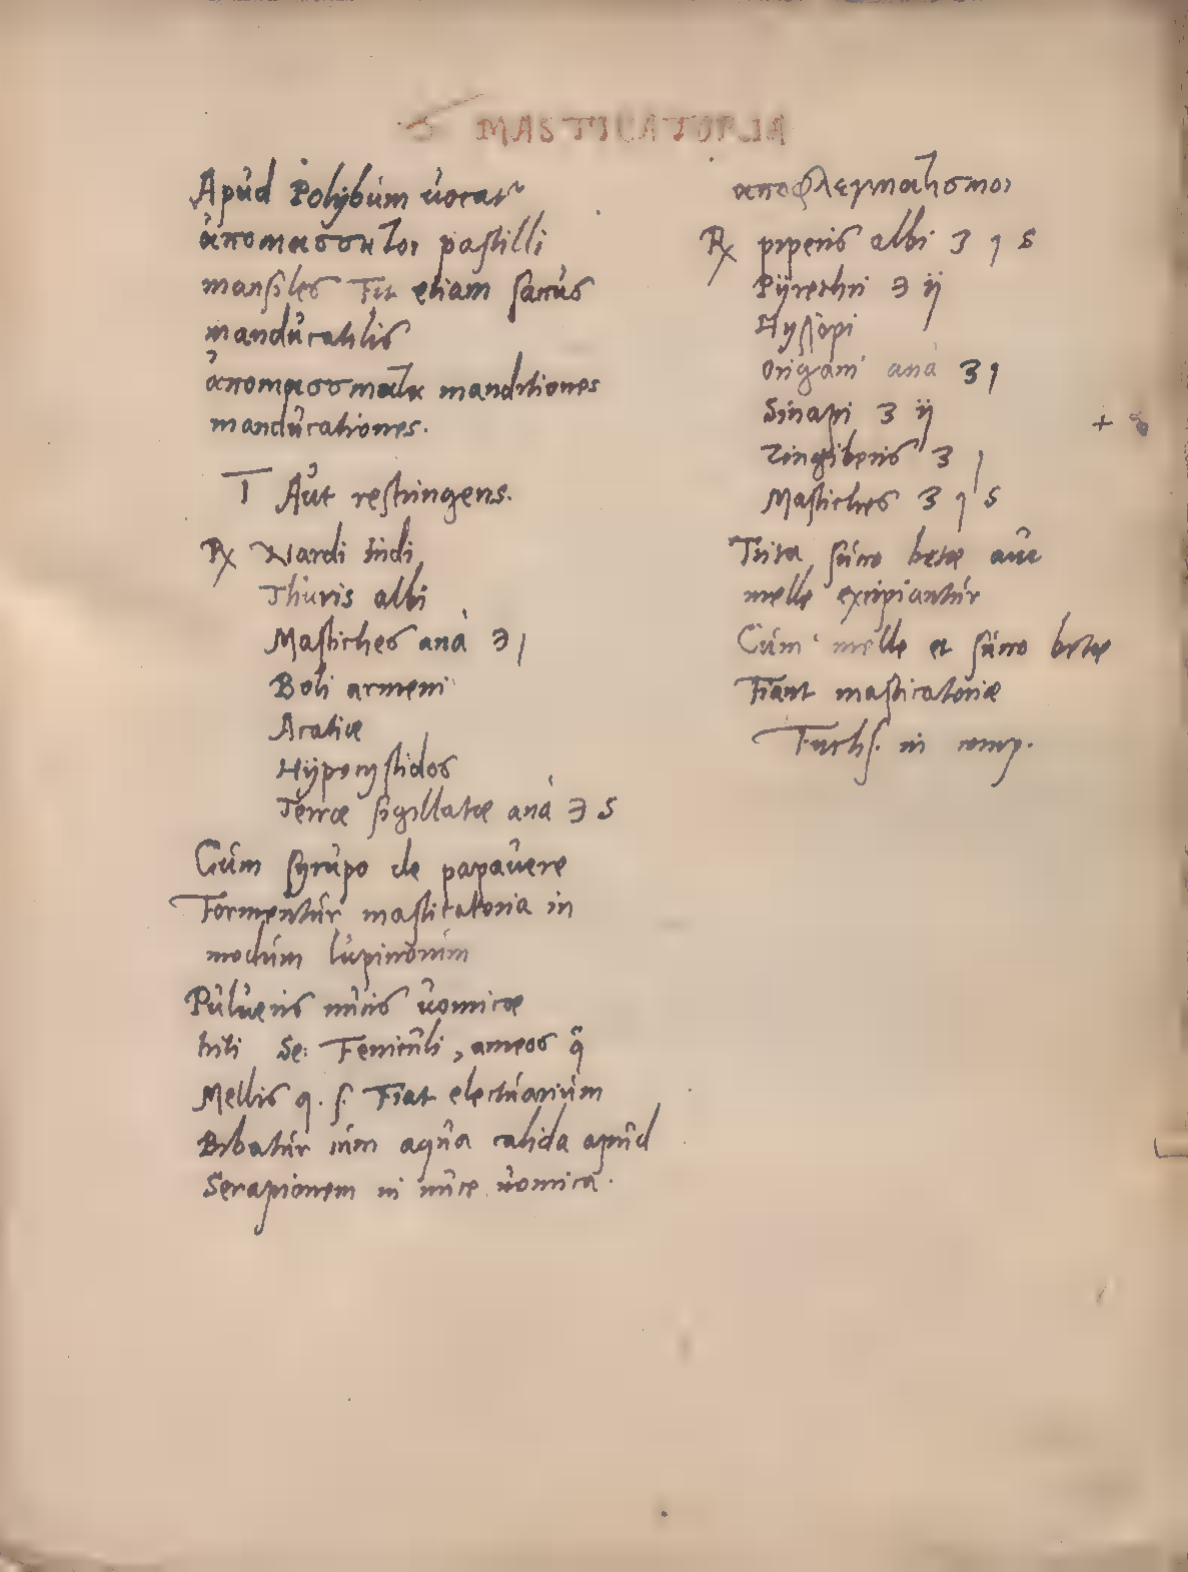 MASTICATORIA
Apud Polybum vocat
ἀπομασσητοι pastilli
mansiles Fit etiam
manducatilis
ἀπομασσματα manditiones
manducationes.
I Aut restringens.
℞ Nardi Indi
Thuris albi
Mastiches ana ℈ j
Boli armeni
Acatiæ
Hypocystidos
Terræ sigillatæ ana ℈ s
Cum syrupo de papavere
Formentur masticatoria in
modum lupinorum
Pulveris nucis vomicæ
triti se: Feniculi, ameos
Mellis q. s. Fiat electuarium
Bibatur cum aqua calida apud
Serapionem in nuce vomica.
αποφλεγματισμοι
℞ piperis albi ʒ j s
Pyrethri ℈ ij
Hyssopi
Origani ana ʒ j
Sinapi ʒ ij
Zingiberis ʒ j
Mastiches ʒ j s
Trita succo betæ aut
melle excipiantur
Cum melle et succo betæ
Fiant masticatoriæ
Fuchs. in comp.
+